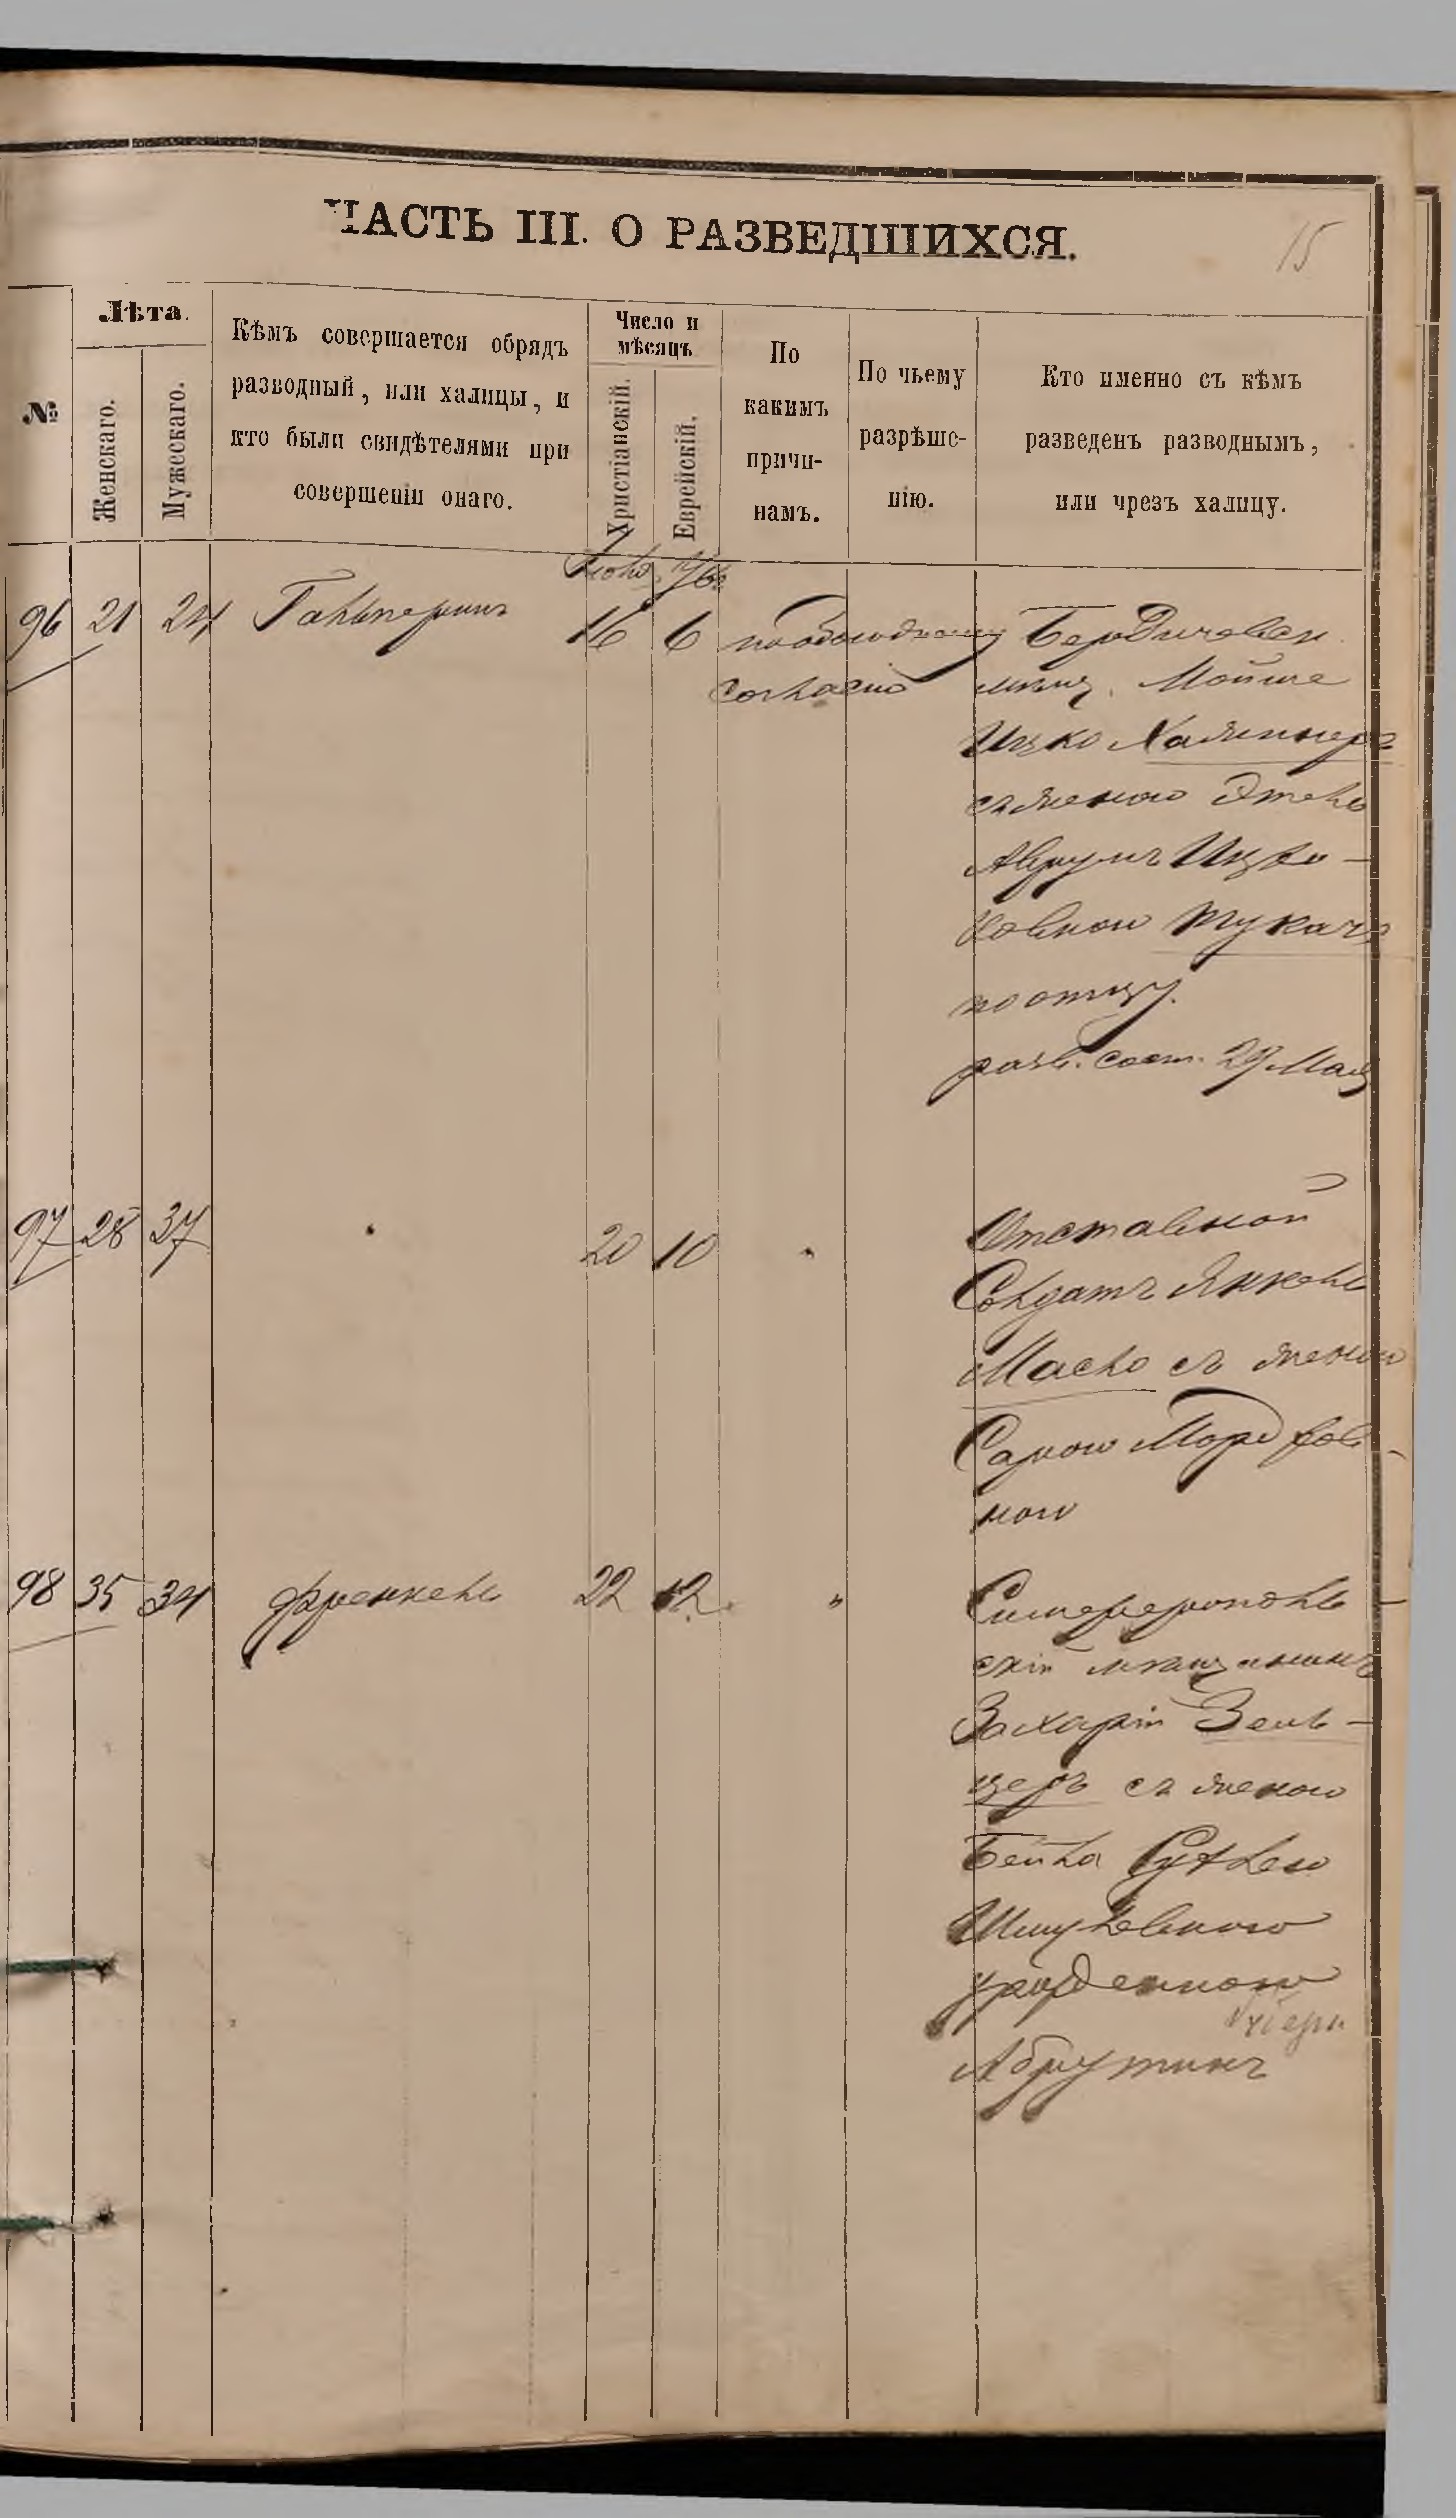 ЧАСТЬ III. О РАЗВЕДШИХСЯ.
15
№
Лѣта.
Женскаго.
Мужескаго.
Кѣмъ совершается обрядъ
разводный, или халицы, и
кто были свидѣтелями при
совершеніи онаго.
Число и
мѣсяцъ
Христіанскій.
Еврейскій.
По
какимъ
причи-
намъ.
По чьему
разрѣше-
нію.
Кто именно съ кѣмъ
разведенъ разводнымъ,
или чрезъ халицу.
96 21 24 Гальперинъ 16 6 по обоюдному
согласію
Бердичевск.
мѣщ. Мойше
Ицко
съ женою Этель
Аврумъ Ицко-
вовною Тукачъ
по отцу.
разв. сост. 29 Мая
97 28 37 " 20 10 "
Отставной
Солдатъ Янкель
Масло съ женою
Сарою Мордков-
ною
98 35 34 Френкель 22 12 "
Симферополь-
скій мѣщанинъ
Захарій Зель-
церъ съ женою
Бейла
Шмулевною
урожденною
Абрутинъ